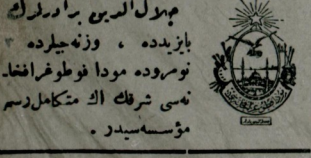 جلال الدين برادرلرك
بايزيدده ، وزنه جيلرده ٣
نومروده مودا فوطوغرافخا-
نه سى شرقك اك متكامل رسم
مؤسسه سيدر .